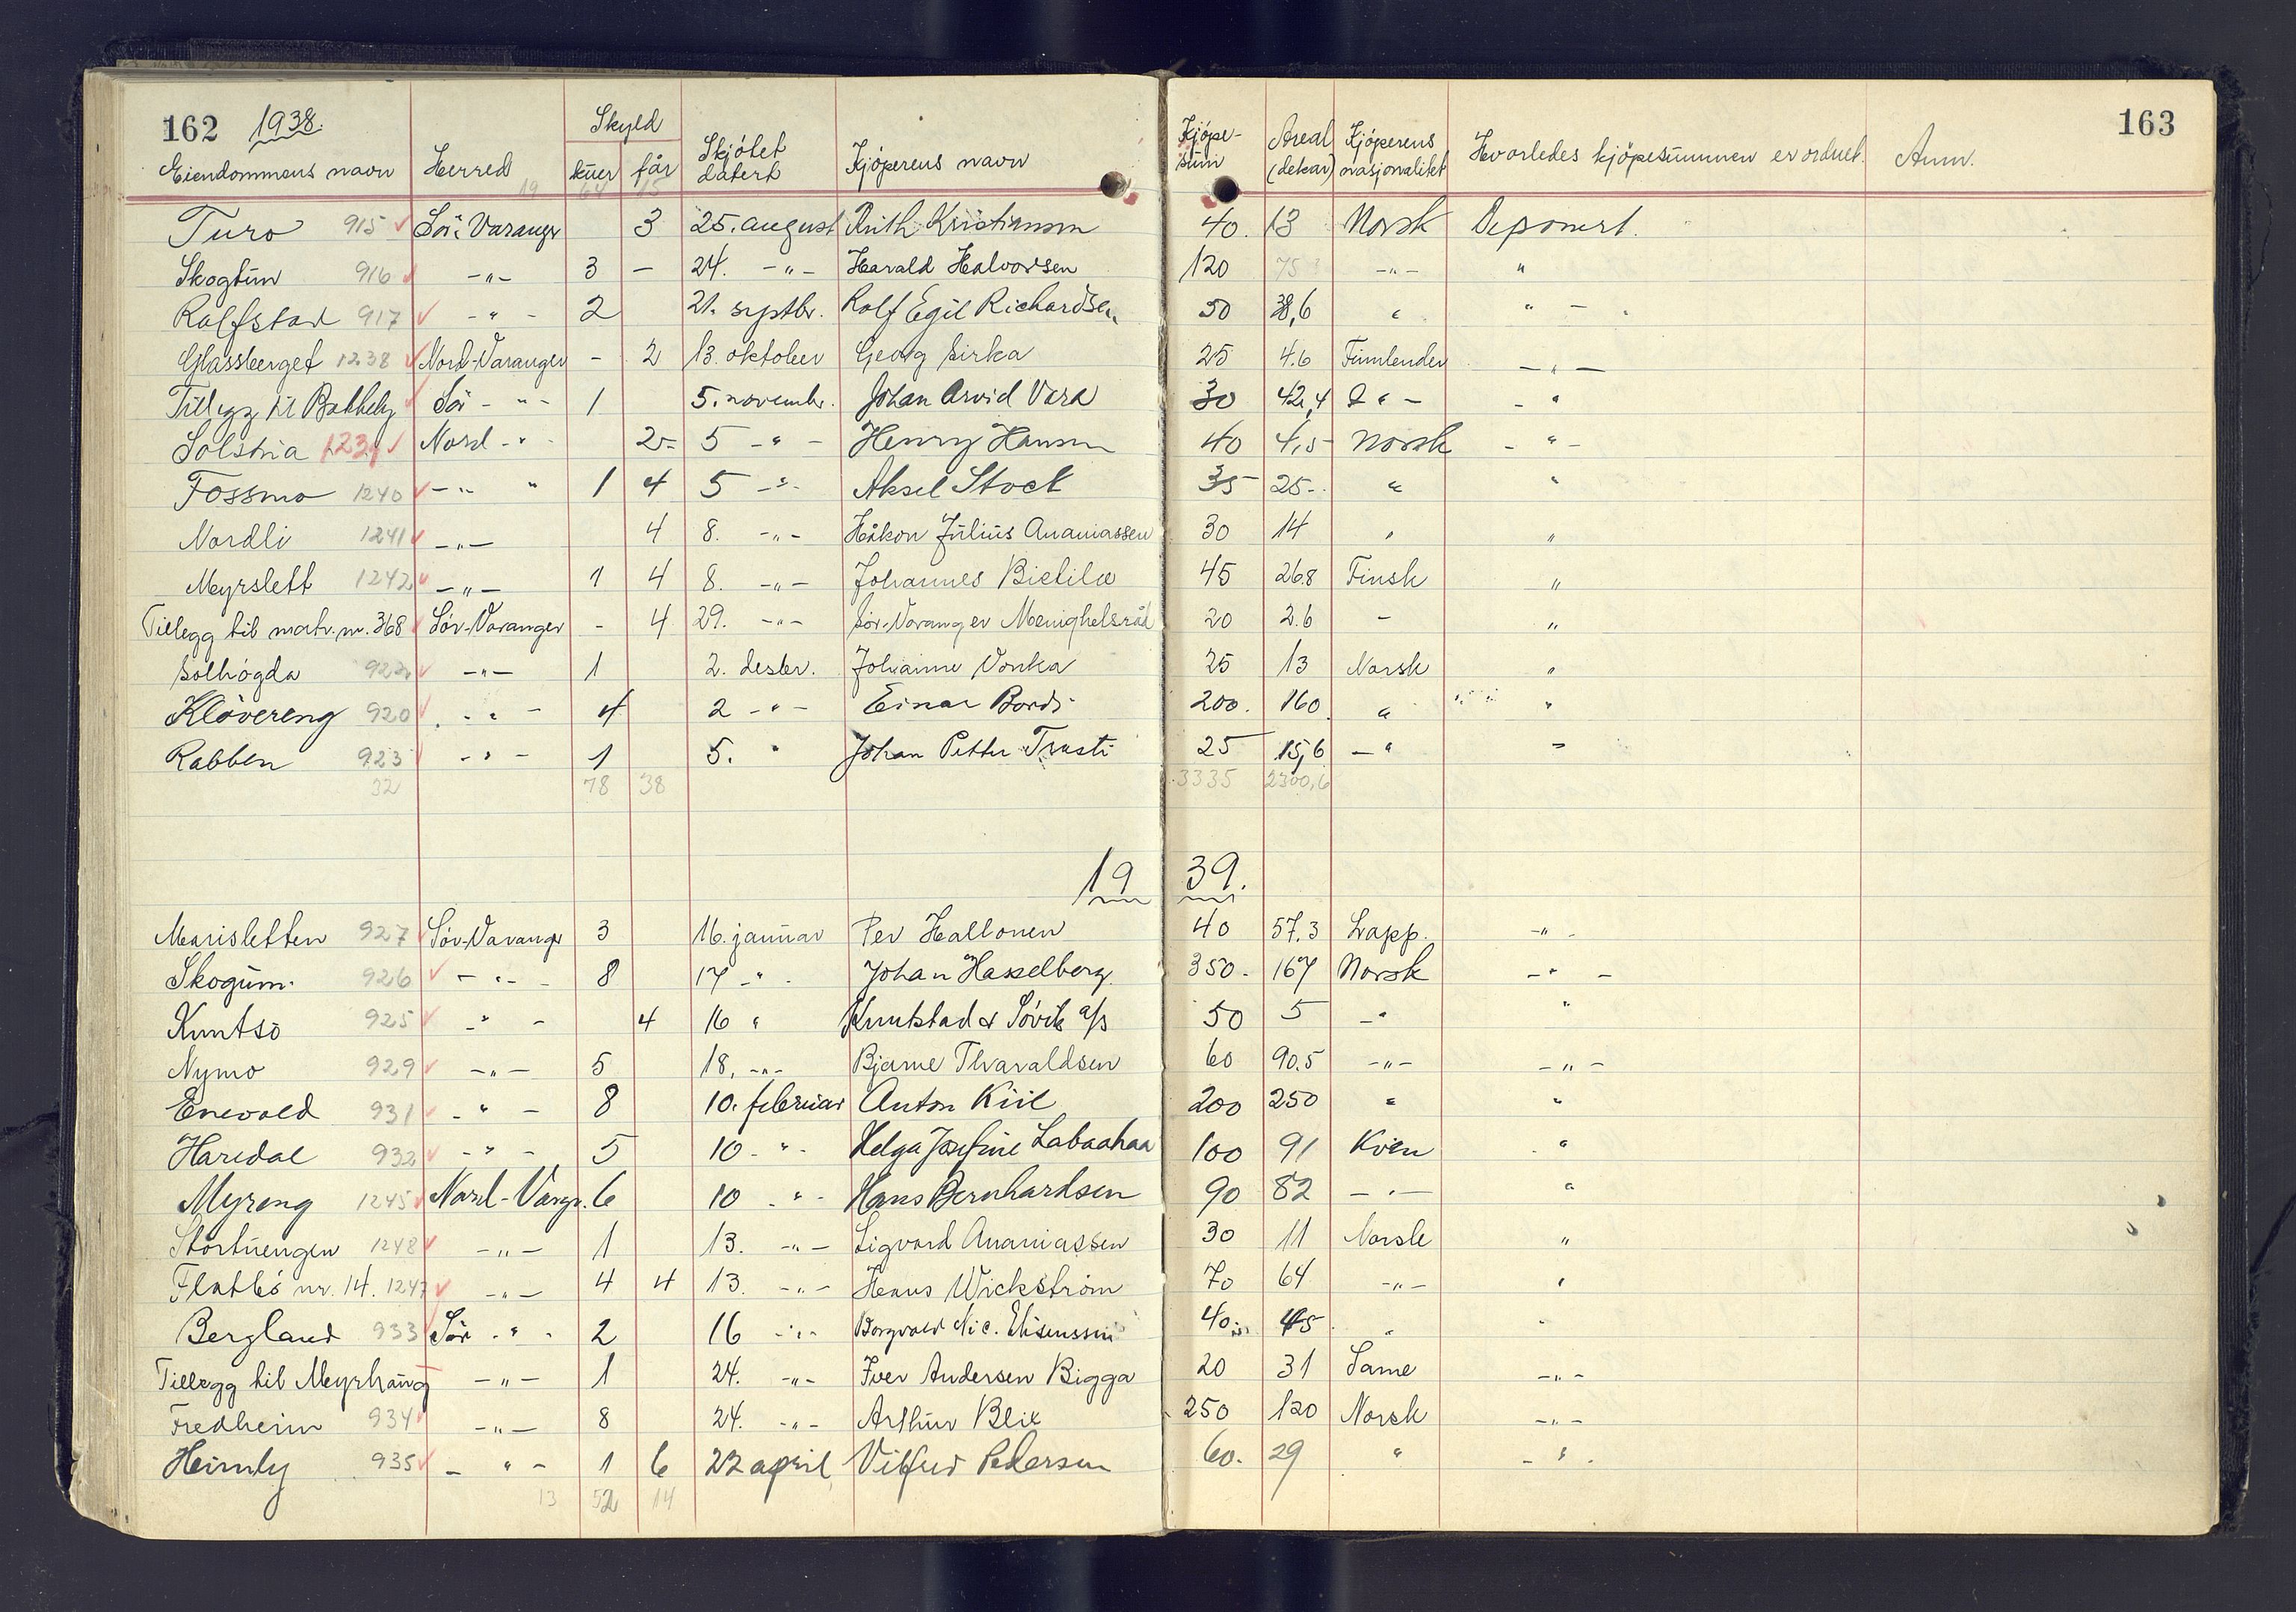 162 1938. Skyld 163
Eiendommens navn Herred kuer får Skjötet datert Kjöperens navn Kjöpe-sum Areal (dekar) Kjöperens nasjonalitet Hvorledes kjöpesummen er ordnet. Anm.
19 64 15
Turo 915 Sör Varanger 3 25. august Ruth Kristiansen 40. 13 Norsk Deponert.
Skogtun 916 -"- 3 - 24. -"- Harald Halvorsen 120 75 -"- "
Rolfstad 917 -"- 2 21. septbr. Rolf Egil Richardsen 50 38,6 " " -
Glassberget 1238 Nord-Varanger - 2 13. oktober Georg Sirka 25 4.6 Finnlender -"-
Tillegg til Bakkeby Sör -"- 1 5. novembr. Johan Arvid Vara 30 42,4 -"- -"
Solstria 1239 Nord -"- 2- 5 -"- Henry Hansen 40 4,5 Norsk -"-
Fossmo 1240 -"- " 1 4 5 -"- Aksel Stock 35 25- " "
Nordli 1241 -"- 4 8. -"- Håkon Julius Ananiassen 30 14 " "
Myrslett 1242 -"- 1 4 8. -"- Johannes Bietilæ 45 26.8 Finsk "
Tillegg til matr. nr. 368 Sör-Varanger - 4 29. -"- Sör-Varanger Menighetsråd 20 2.6 - "
Solhögda 922 -"- 1 2. desbr. Johanne Vonka 25 13 Norsk "
Klövereng 920 -"- 4 2 -"- Einar Bordi 200. 160 " "
Rabben 923 -"- 1 5. " Johan Petter Trasti 25 15,6 -" "
32 78 38 3335 2300,6
19 39.
Marisletten 927 Sör-Varanger 3 16. januar Per Hallonen 40 57.3 Lapp. -"-
Skogum. 926 -"- 8 17 -"- Johan Hasselberg. 350.- 167 Norsk -"-
Kuntsö 925 -"- 4 16 " Knutstad & Sövik a/s 50 5 -" "
Nymo 929 -"- 5 18. -"- Bjarne Thvaraldsen 60 90.5 -"- -"-
Enevold 931 -"- 8 10. februar Anton Kiil 200 250 " "
Haredal 932 -"- 5 10 -"- Helga Josefine Labaahaa 100 91 Kven "
Myreng 1245 Nord-Varngr. 6 10 -"- Hans Bernhardsen 90 82 -"- "
Stortuengen 1248 -"- 1 13. -"- Sigvard Ananiassen 30 11 Norsk "
Flatbö nr. 14. 1247 -"- 4 4 13. -"- Hans Wickström 70 64 -"- "
Bergland 933 Sör -"- 2 16 -"- Borgvald Nic. Elisenssen 40.- 45 " "
Tillegg til Myrhaug -"- 1 24. -"- Iver Andersen Bigga 20 31 Same -"-
Fredheim 934 -"- 8 24. -"- Arthur Blix 250 120 Norsk -"-
Heimly 935 -"- 1 6 22 april Vilfred Pedersen 60. 29 " -"-
13 52 14